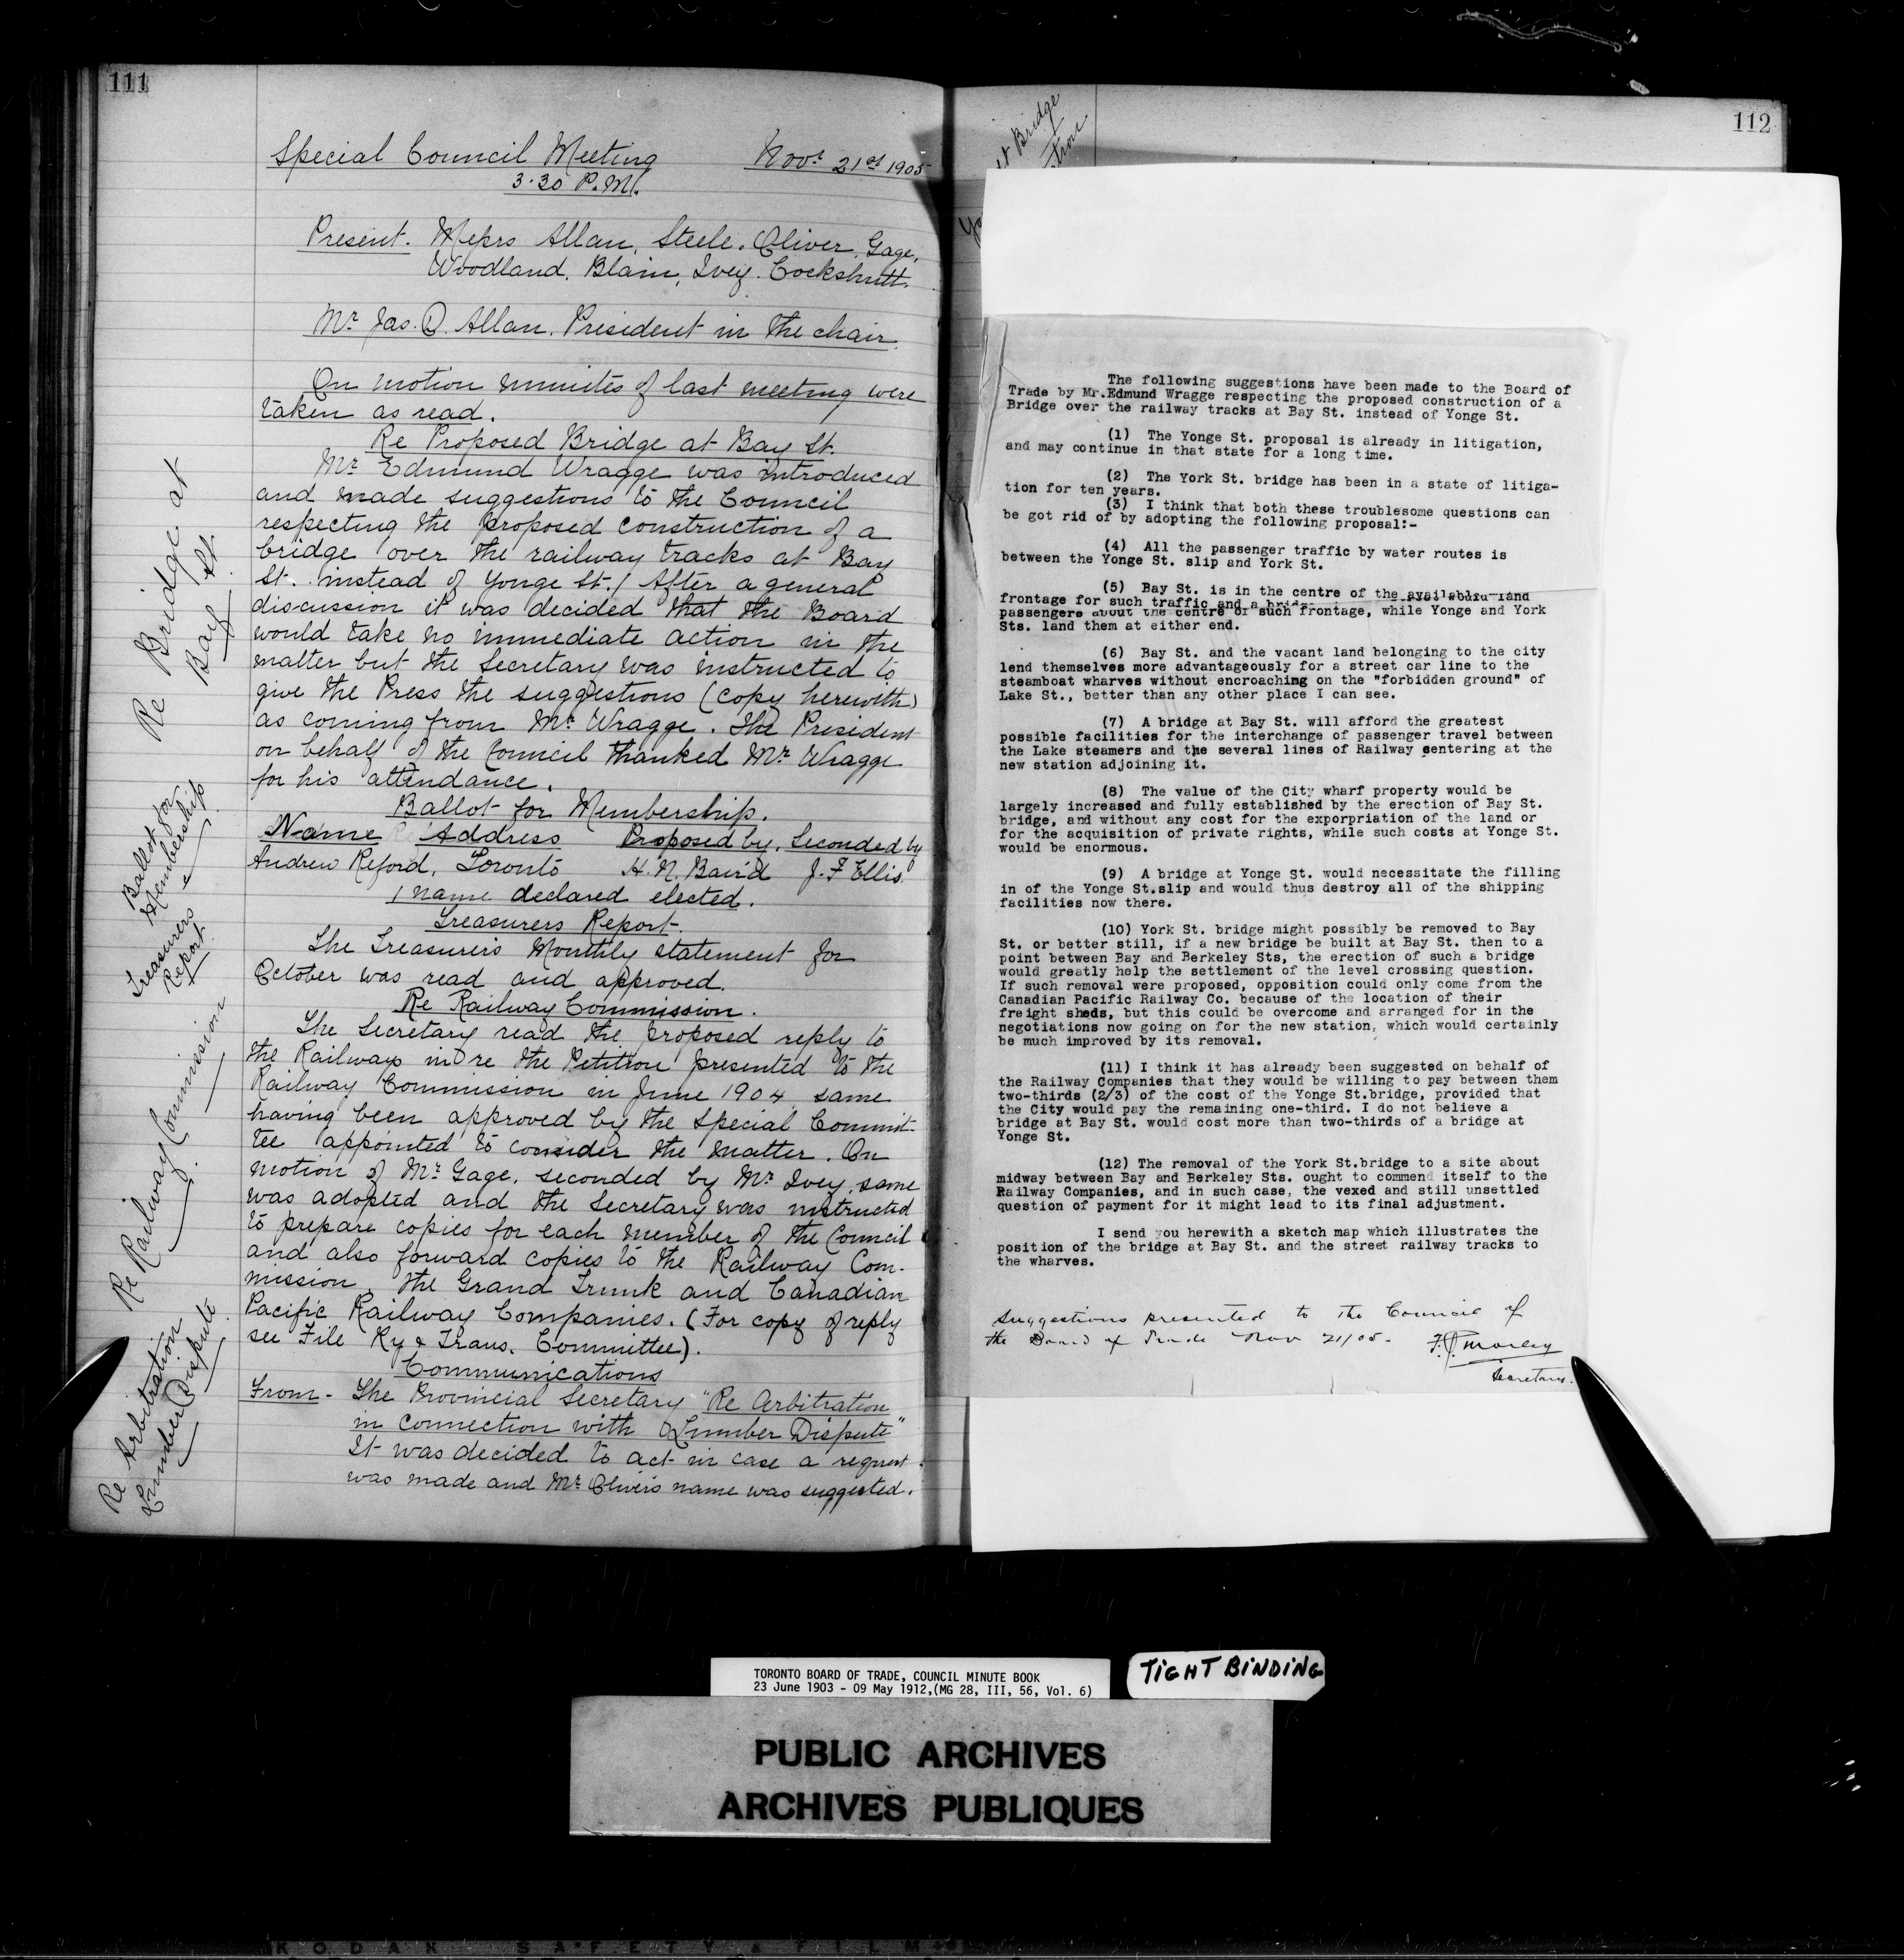 111
Special Council Meeting Novr 21st 1905
3.30 P.M.
Present. Messrs Allan, Steele, Oliver, Gage,
Woodland, Blain, Ivey, Cockshutt.
Mr Jas. D. Allan. President in the chair.
On motion minutes of last meeting were
taken as read.
Re Proposed Bridge at Bay St.
Re Bridge at
Bay St.
Mr Edmund Wragge was introduced
and made suggestions to the Council
respecting the proposed construction of a
bridge over the railway tracks at Bay
St. instead of Yonge St. / After a general
discussion it was decided that the Board
would take no immediate action in the
matter but the Secretary was instructed to
give the Press the suggestions (copy herewith)
as coming from Mr Wragge. The President
on behalf of the Council thanked Mr Wragge
for his attendance.
Ballot for Membership.
Ballot for
Membership
Name Address Proposed by. Seconded by
Andrew Reford, Toronto H. N. Baird J. F Ellis.
1 name declared elected.
Treasurers Report.
Treasurers
Report
The Treasurers Monthly statement for
October was read and approved.
Re Railway Commission.
Re Railway Commission.
The Secretary read the proposed reply to
the Railways in re the Petition presented to the
Railway Commission in June 1904, same
having been approved by the Special Commit-
tee appointed to consider the matter. On
motion of Mr Gage, seconded by Mr Ivey, same
was adopted and the Secretary was instructed
to prepare copies for each member of the Council
and also forward copies to the Railway Com-
mission, the Grand Trunk and Canadian
Pacific Railway Companies. (For copy of reply
see File Ry & Trans. Committee).
Communications
Re Arbitration
Lumber Dispute.
From - The Provincial Secretary "Re Arbitration
in connection with Lumber Dispute"
It was decided to act in case a request
was made and Mr Olivers name was suggested.
112
Bridge
The following suggestions have been made to the Board of
Trade by Mr.Edmund Wragge respecting the proposed construction of a
Bridge over the railway tracks at Bay St. instead of Yonge St.
(1) The Yonge St. proposal is already in litigation,
and may continue in that state for a long time.
(2) The York St. bridge has been in a state of litiga-
tion for ten years.
(3) I think that both these troublesome questions can
be got rid of by adopting the following proposal:-
(4) All the passenger traffic by water routes is
between the Yonge St. slip and York St.
(5) Bay St. is in the centre of the available land
frontage for such traffic and a
passengers about the centre of such frontage, while Yonge and York
Sts. land them at either end.
(6) Bay St. and the vacant land belonging to the city
lend themselves more advantageously for a street car line to the
steamboat wharves without encroaching on the "forbidden ground" of
Lake St., better than any other place I can see.
(7) A bridge at Bay St. will afford the greatest
possible facilities for the interchange of passenger travel between
the Lake steamers and the several lines of Railway centering at the
new station adjoining it.
(8) The value of the City wharf property would be
largely increased and fully established by the erection of Bay St.
bridge, and without any cost for the exporpriation of the land or
for the acquisition of private rights, while such costs at Yonge St.
would be enormous.
(9) A bridge at Yonge St. would necessitate the filling
in of the Yonge St.slip and would thus destroy all of the shipping
facilities now there.
(10) York St. bridge might possibly be removed to Bay
St. or better still, if a new bridge be built at Bay St. then to a
point between Bay and Berkeley Sts, the erection of such a bridge
would greatly help the settlement of the level crossing question.
If such removal were proposed, opposition could only come from the
Canadian Pacific Railway Co. because of the location of their
freight sheds, but this could be overcome and arranged for in the
negotiations now going on for the new station, which would certainly
be much improved by its removal.
(11) I think it has already been suggested on behalf of
the Railway Companies that they would be willing to pay between them
two-thirds (2/3) of the cost of the Yonge St.bridge, provided that
the City would pay the remaining one-third. I do not believe a
bridge at Bay St. would cost more than two-thirds of a bridge at
Yonge St.
(12) The removal of the York St.bridge to a site about
midway between Bay and Berkeley Sts. ought to commend itself to the
Railway Companies, and in such case, the vexed and still unsettled
question of payment for it might lead to its final adjustment.
I send you herewith a sketch map which illustrates the
position of the bridge at Bay St. and the street railway tracks to
the wharves.
Suggestions presented to the Council of
the Board of Trade Nov 21/05 - F.G. Morley
Secretary.
TORONTO BOARD OF TRADE, COUNCIL MINUTE BOOK
23 June 1903 - 09 May 1912,(MG 28, III, 56, Vol. 6)
TIGHT BINDING
PUBLIC ARCHIVES
ARCHIVES PUBLIQUES
KODAK SAFETY FILM